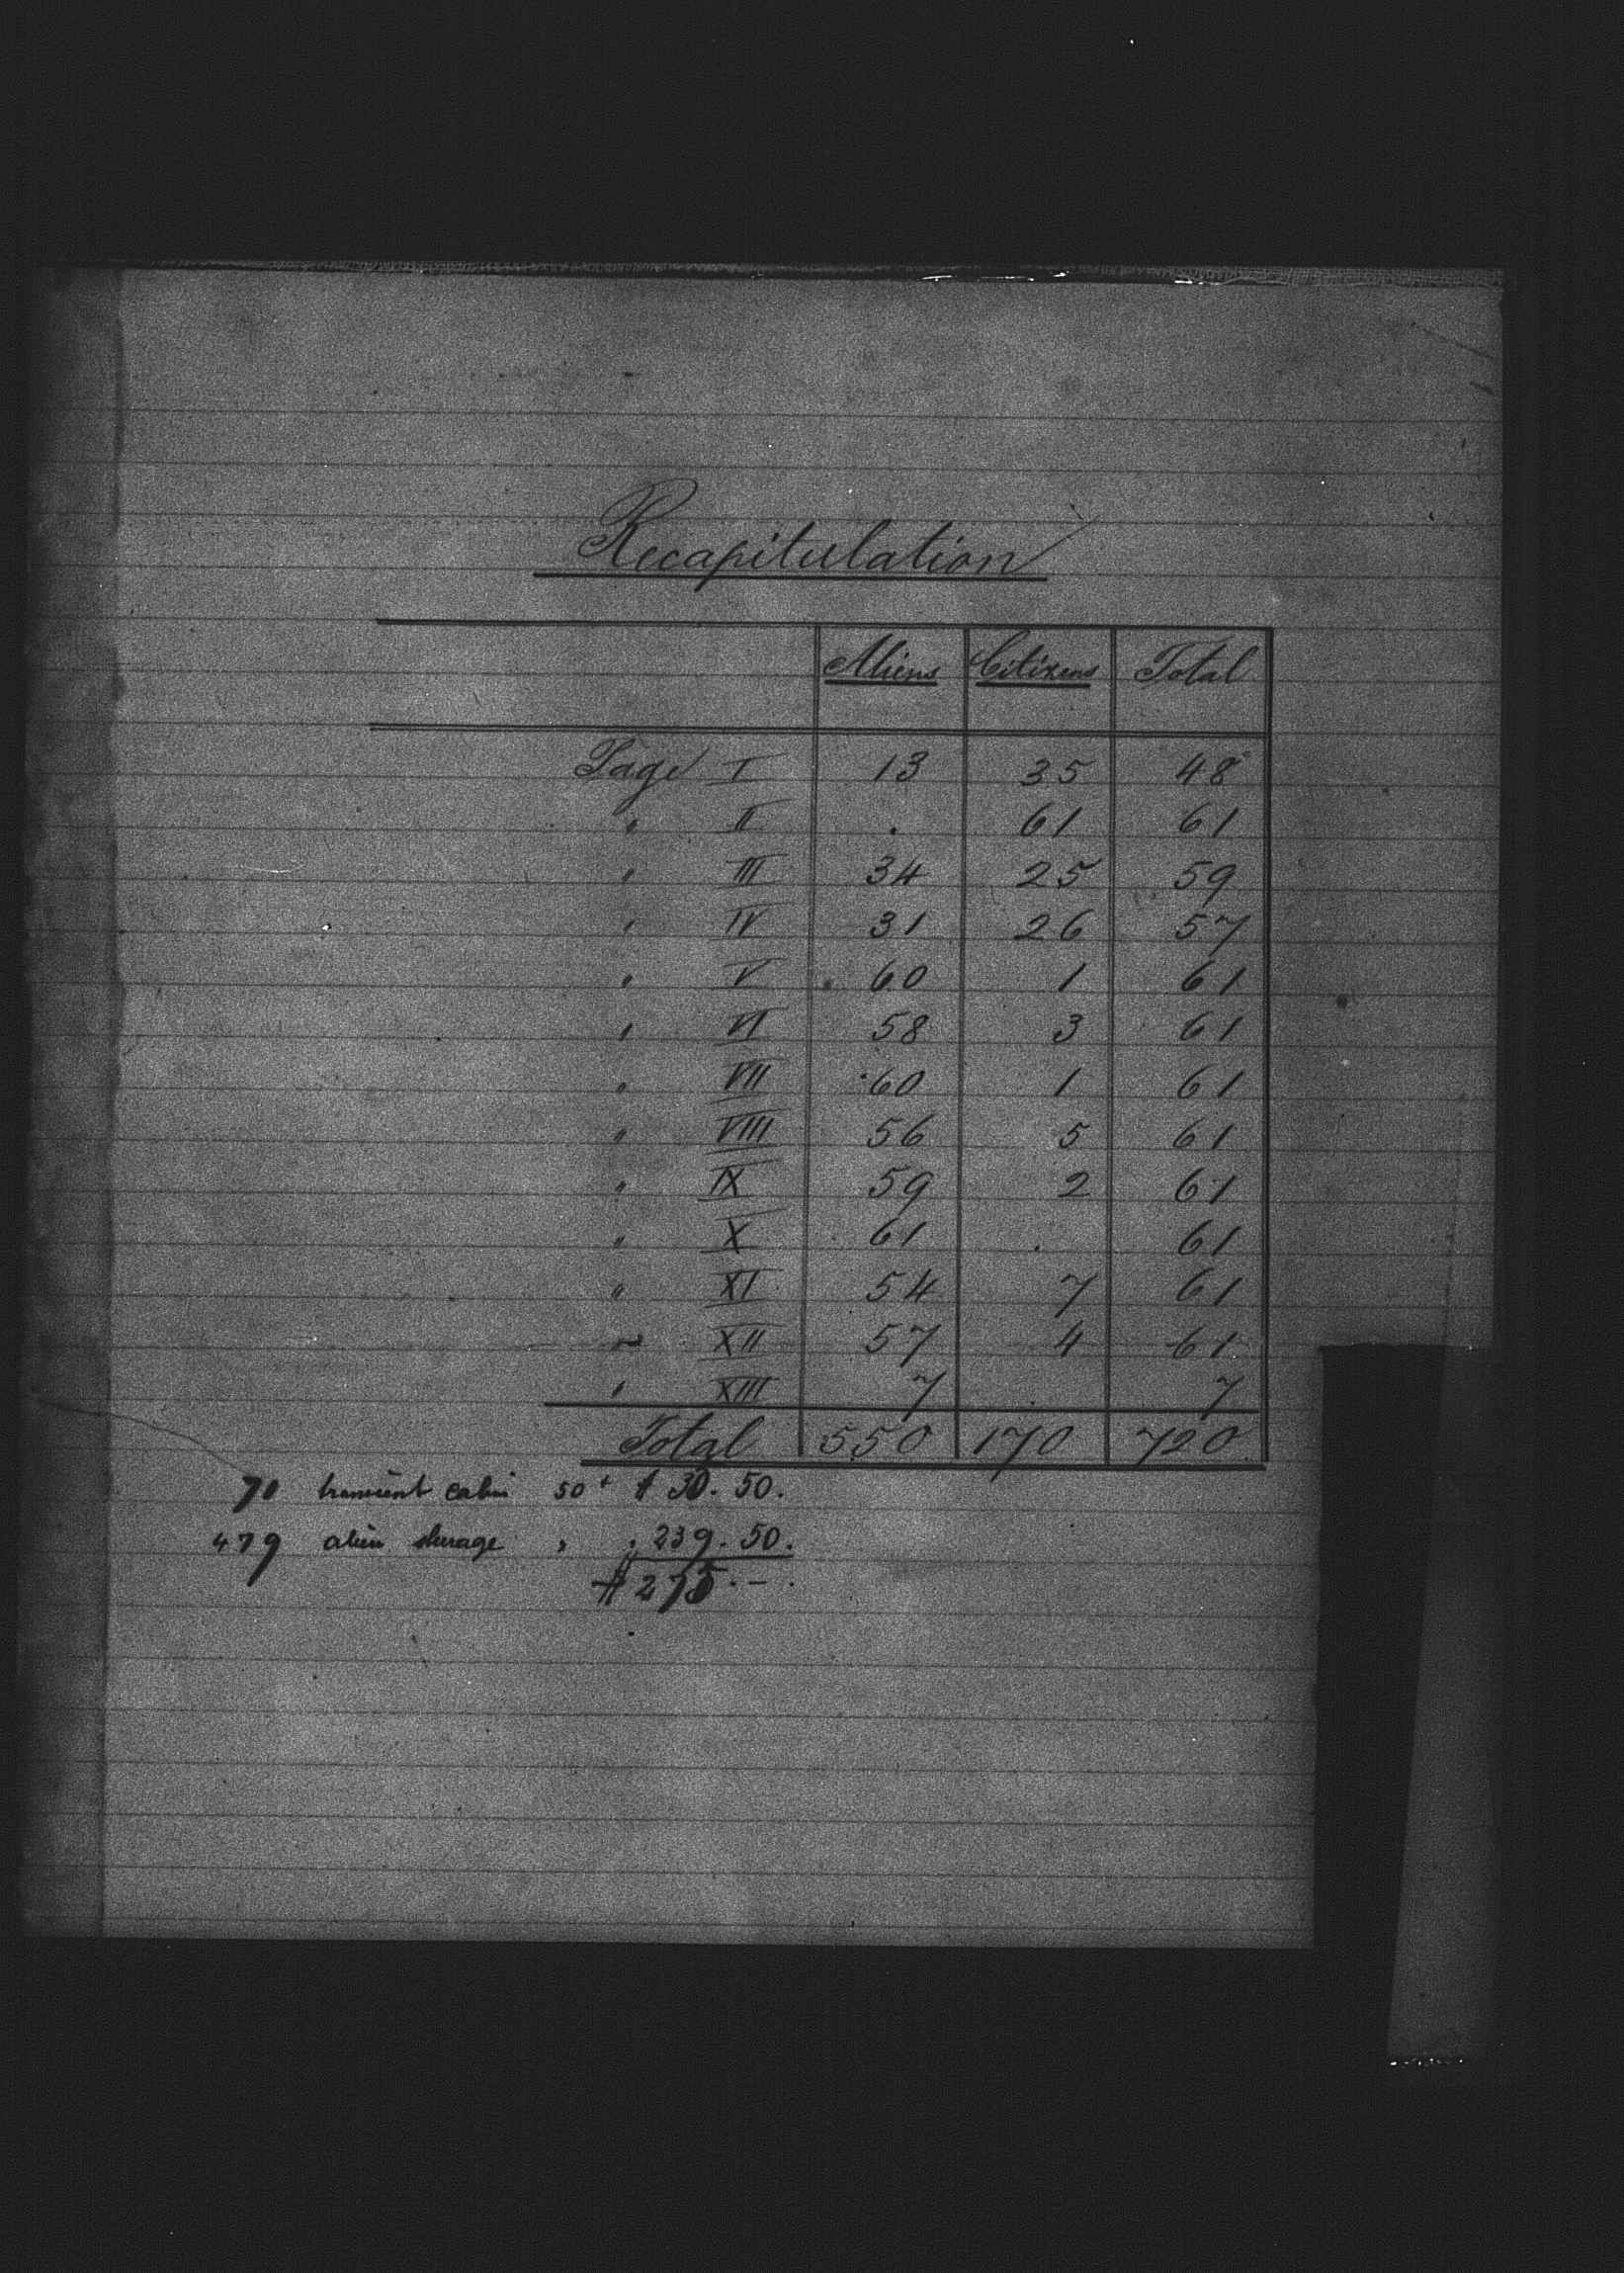 Recapitulation
Aliens Citizens Total
Page I 13 35 48
" II . 61 61
" III 34 25 59
" IV 31 26 57
" V 60 1 61
" VI 58 3 61
" VII 60 1 61
" VIII 56 5 61
" IX 59 2 61
" X 61 . 61
" XI 54 7 61
" XII 57 4 61
" XIII 7 . 7
Total 550 170 720
transient cabin 50 $ 50.
479 alien sterage " " 239.50.
$ 275.-.